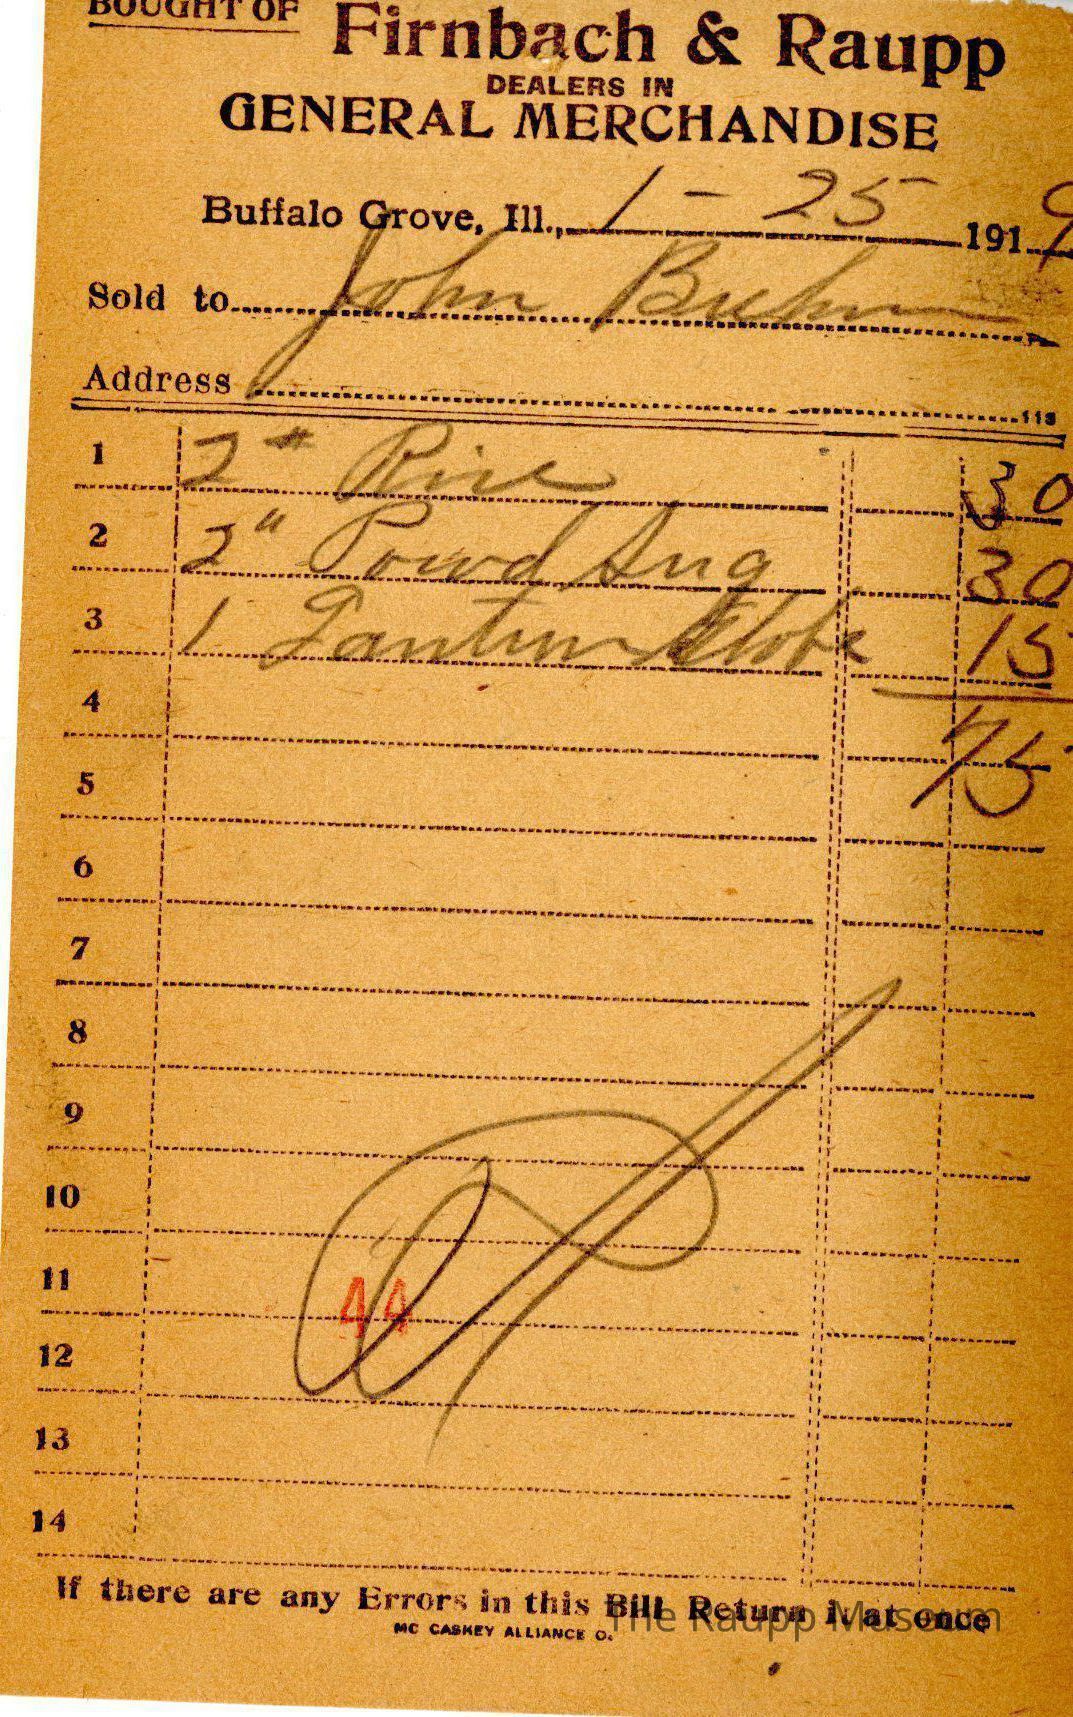 BOUGHT OF
Firnbach & Raupp
DEALERS IN
GENERAL MERCHANDISE
Buffalo Grove, Ill., 1 - 25 1919
Sold to John
Address
113
1 2 # Rice 30
2 2 " Powd Sug 30
3 1 Lantern Globe 15
4 75
5
6
7
8
9
10
11
44
12
13
14
If there are any Errors in this Bill Return it at once
The Raupp Museum
MC CASKEY ALLIANCE O.